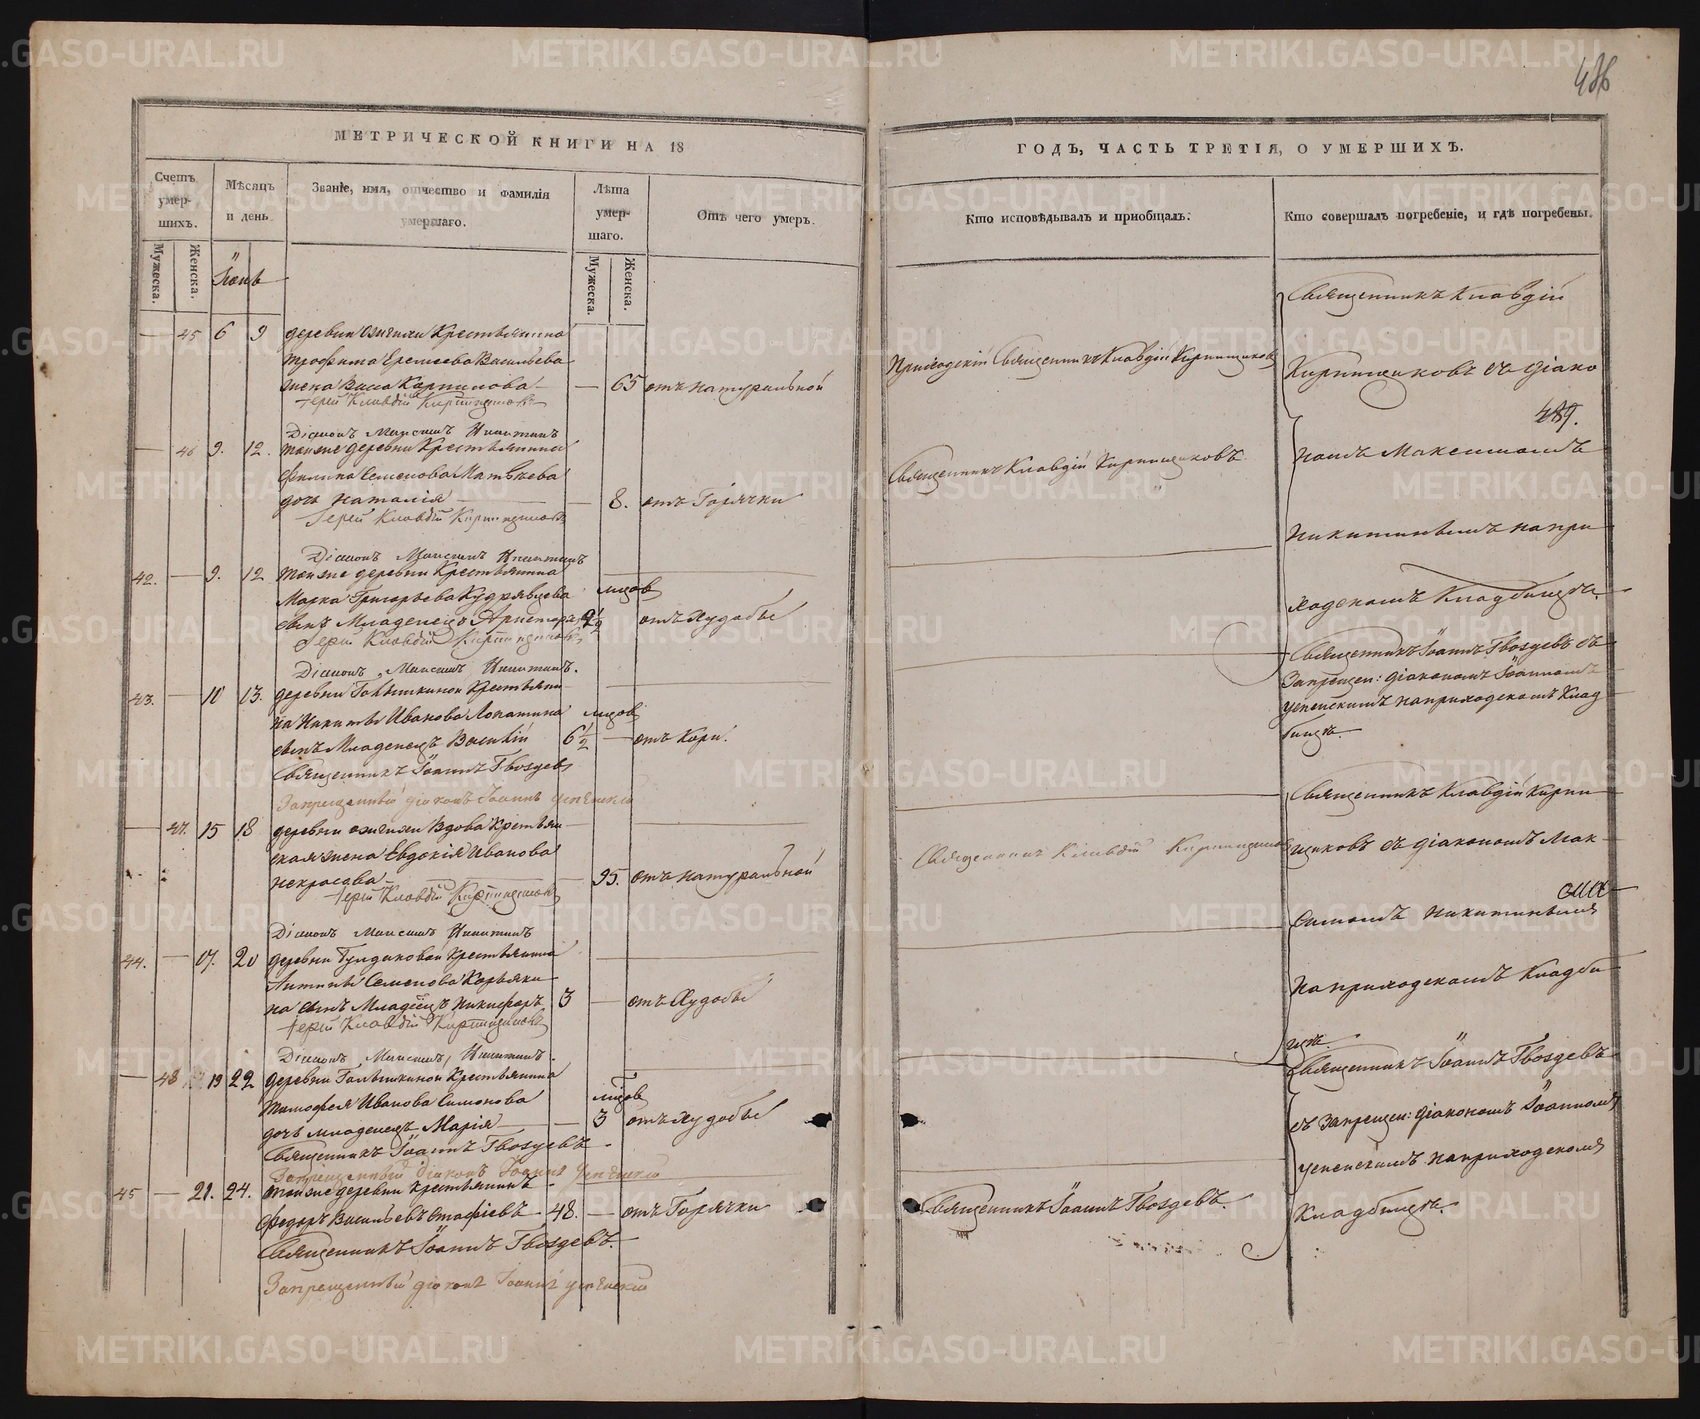 486
МЕТРИЧЕСКОЙ КНИГИ НА 18
Счетъ умер-шихъ.
Мѣсяцъ и день
Званіе, имя, отчество и фамилія умершаго.
Лѣта умер-шаго.
Отъ чего умеръ.
Мужеска.
Женска.
Мужеска.
Женска.
Іюнь
45 6 9 деревни Крестьянина
Трофима Еремеева Васильева
жена Васа Карпилова 65 отъ натуральной
Іерей Клавдій Кирпищиковъ
Діаконъ Максимъ Никитинъ
46 9. 12. тойже деревни Крестьянина
Филипа Семенова Матвѣева
дочь Наталія 8. отъ Горячки
Іерей Клавдій Кирпищиковъ
Діаконъ Максимъ Никитинъ
42. 9. 12 тойже деревни Крестьянина
Марка Григорьева Кудрявцова
сынъ Младенецъ отъ Худобы
Іерей Клавдій Кирпищиковъ
Діаконъ Максимъ Никитинъ.
43. 10 13. деревни Голышкиной Крестьяни
на Никиты Иванова Лопатина
сынъ Младенецъ Василій 6 1/2 отъ Кори.
Священникъ Іоаннъ Гвоздевъ
Запрещенный діаконъ Іоаннъ Успенскій
47. 15 18 деревни Вдова Крестьян
ская жена Евдокія Иванова
Некрасова 95. отъ натуральной
Іерей Клавдій Кирпищиковъ
Діаконъ Максимъ Никитинъ
44. 17. 20 деревни Крестьянина
Семенова Корякина
сынъ Младенецъ Никифоръ 3 отъ Худобы
Іерей Клавдій Кирпищиковъ
Діаконъ Максимъ Никитинъ.
48 19 22 деревни Голышкиной Крестьянина
Тимофея Иванова Симонова
дочь младенецъ Марія 3 отъ Худобы
Священникъ Іоаннъ Гвоздевъ
Запрещенный діаконъ Іоаннъ Успенскій
45 21. 24. тойже деревни Крестьянинъ
Федоръ Васильевъ 48. отъ Горячки
Священникъ Іоаннъ Гвоздевъ.
Запрещенный діаконъ Іоаннъ Успенскій
ГОДЪ, ЧАСТЬ ТРЕТІЯ, О УМЕРШИХЪ.
Кто исповѣдывалъ и пріобщалъ.
Кто совершалъ погребеніе, и гдѣ погребены.
Приходскій Священникъ Клавдій Кирпищиковъ
Священникъ Клавдій Кирпищиковъ
Священникъ Клавдій Кирпищиковъ
Священникъ Іоаннъ Гвоздевъ.
Священникъ Клавдій
Кирпищиковъ съ діако
номъ Максимомъ
Никитинымъ на при
ходскомъ Кладбищѣ.
Священникъ Іоаннъ Гвоздевъ съ
Запрещен: діакономъ Іоанномъ
Успенскимъ на приходскомъ Клад
бищѣ.
Священникъ Клавдій Кирпи
щиковъ съ діакономъ Мак
симомъ Никитинымъ
на приходскомъ Кладби
щѣ.
Священникъ Іоаннъ Гвоздевъ
съ Запрещен: діакономъ Іоанномъ
Успенскимъ на приходскомъ
Кладбищѣ.
METRIKI.GASO-URAL.RU